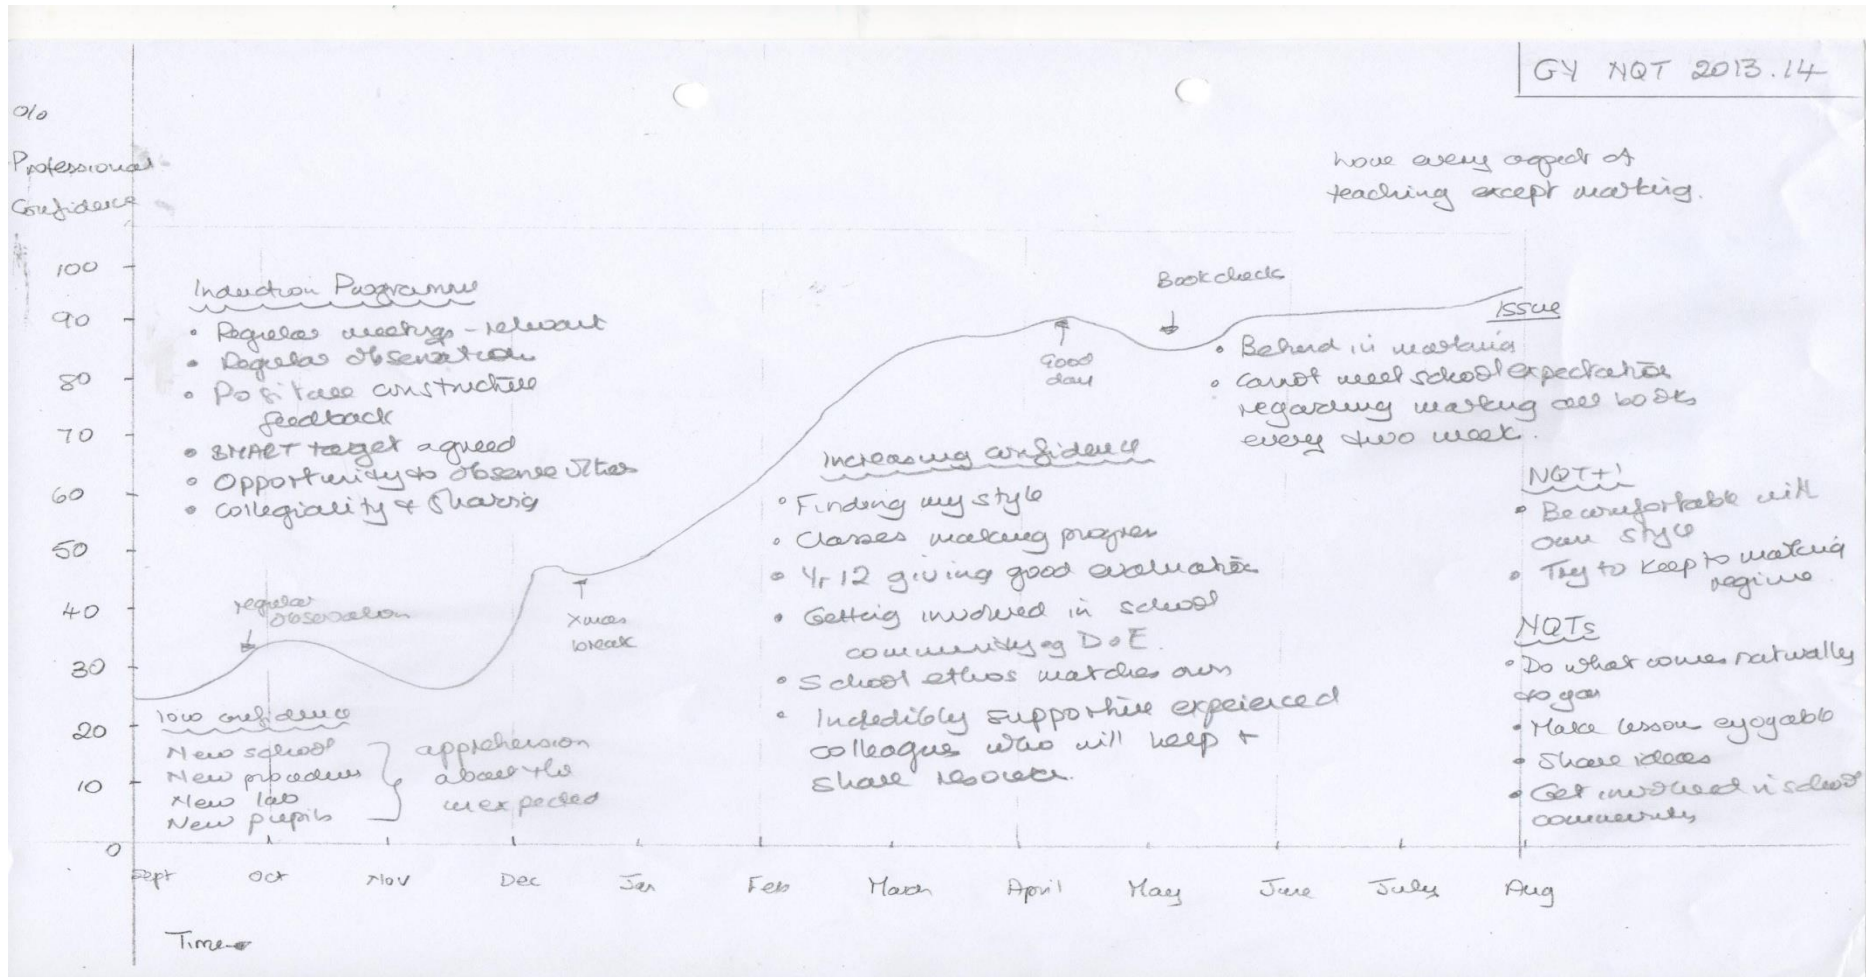 GY NQT 2013.14
%
Professional
Confidence
Love every aspect of
teaching except marking.
100
90
80
70
60
50
40
30
20
10
0
Induction Programme
• Regular meetings - relevant
• Regular observation
• Positive constructive
feedback
• SMART target agreed
• Opportunity to observe others
• Collegiality & Sharing
regular
observation
Xmas
break
low confidence
New school
New procedures
New lab
New pupils
apprehension
about the
unexpected
Increasing confidence
• Finding my style
• Classes making progress
• Yr 12 giving good evaluations
• Getting involved in school
community eg DoE.
• School ethos matches own
• Incredibly supportive experienced
colleagues who will help +
share resources.
Good
day
Book check
Issue
• Behind in marking
• Cannot meet school expectations
regarding marking all books
every two week.
NQT+1
• Be comfortable with
own style
• Try to keep to marking
regime.
NQTs
• Do what comes naturally
to you
• Make lesson enjoyable
• Share ideas
• Get involved in school
community
Sept Oct Nov Dec Jan Feb March April May June July Aug
Time